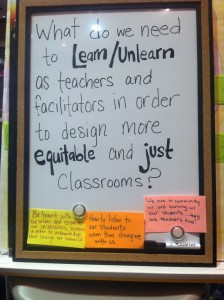 What do we need
to Learn/Unlearn
as teachers and
facilitators in order
to design more
equitable and just
Classrooms?
Be honest with
ourselves and examine
our
in order to
and through our
How to listen to
our students
when they disagree
with us.
We are in community
w/ and learning w/
our students... they
are teachers too!